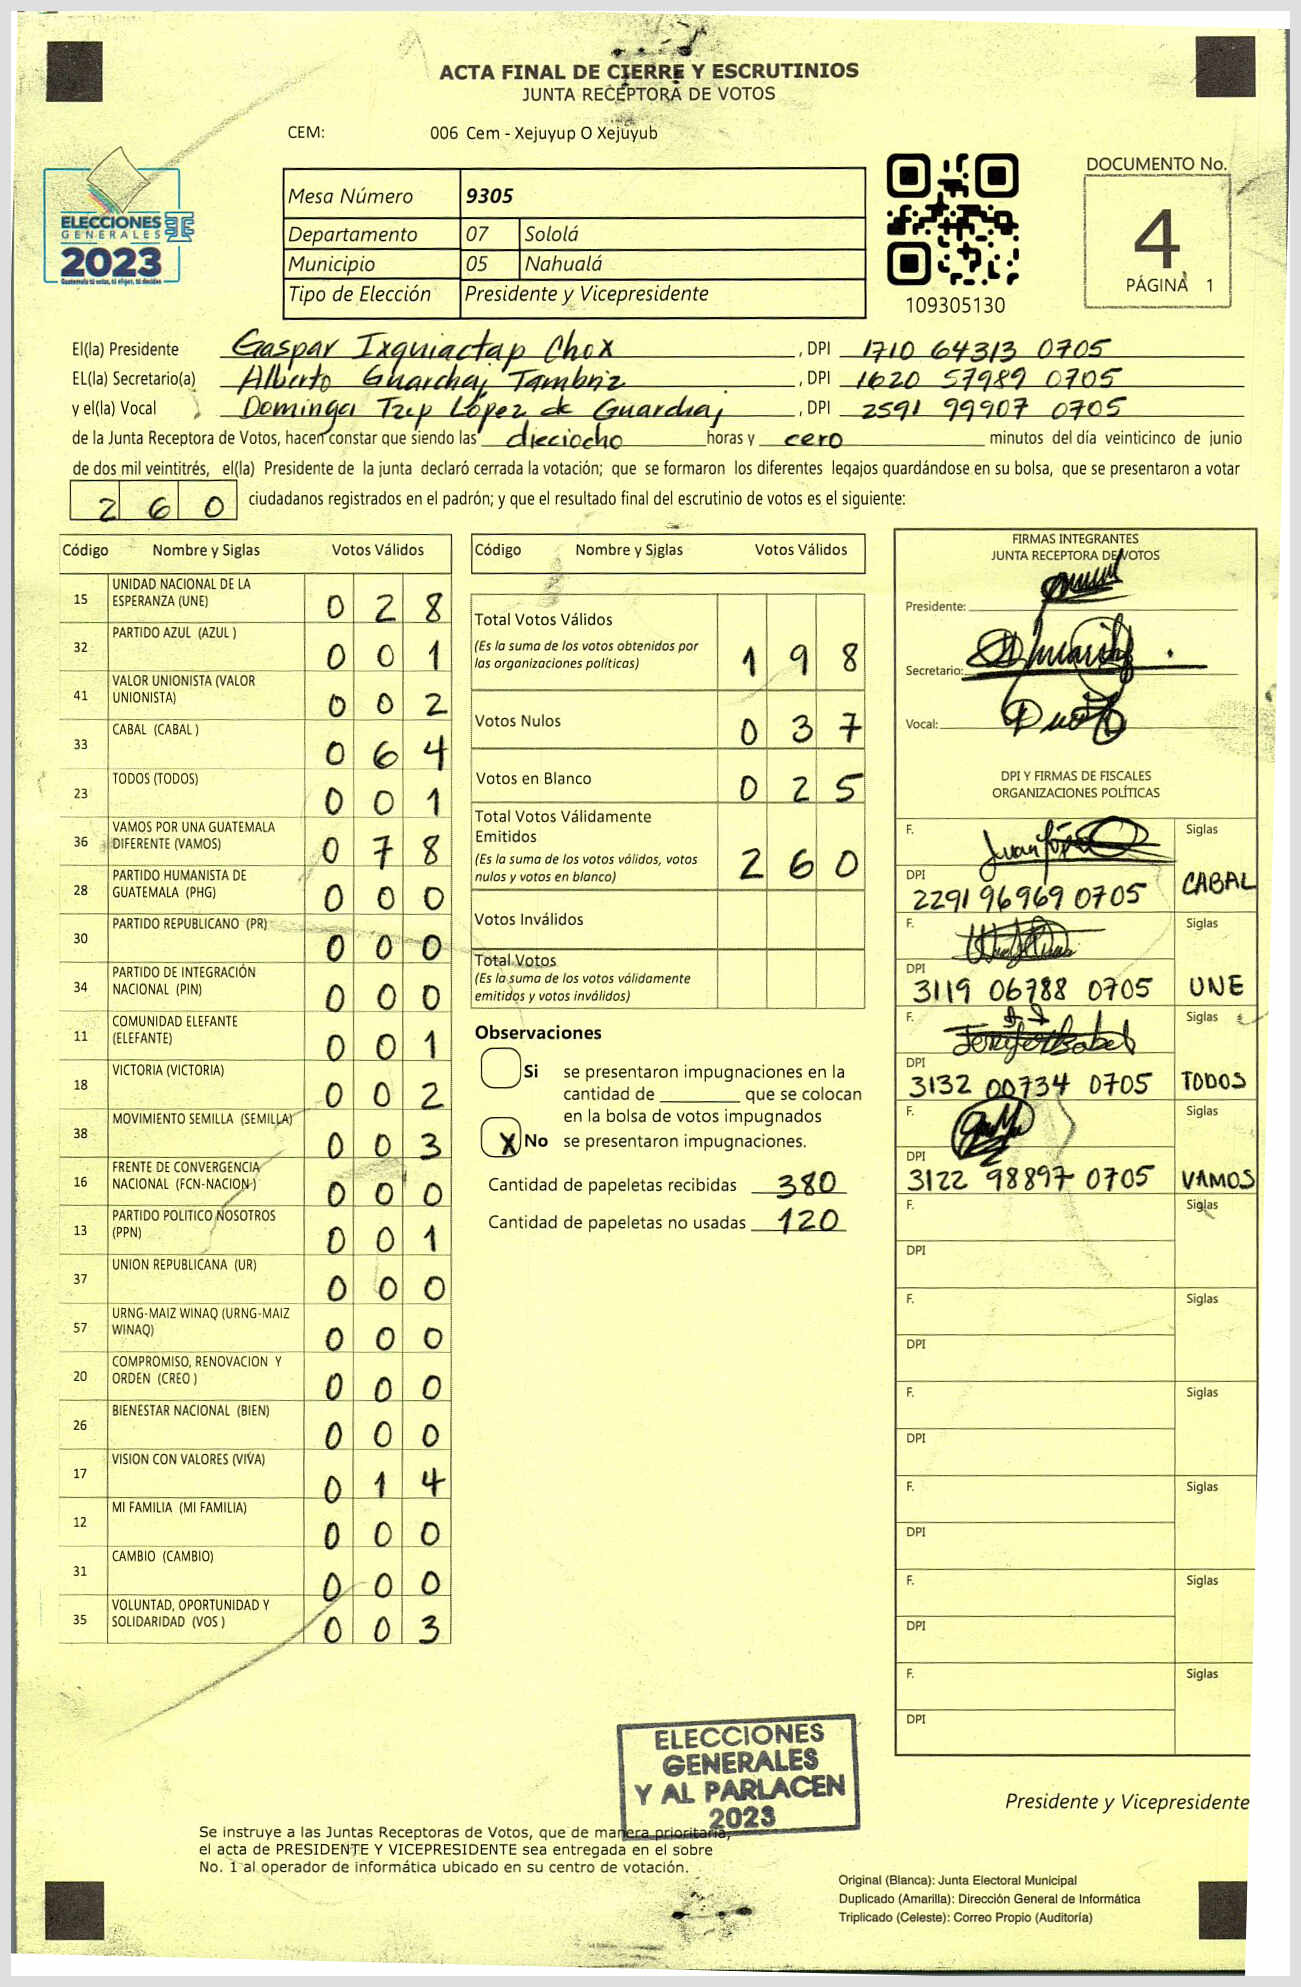 ACTA FINAL DE CIERRE Y ESCRUTINIOS
JUNTA RECEPTORA DE VOTOS
CEM: 006 Cem - Xejuyup O Xejuyub
ELECCIONES
GENERALES
2023
Guatemala tú votas, tú eliges, tú decides
Mesa Número 9305
Departamento 07 Sololá
Municipio 05 Nahualá
Tipo de Elección Presidente y Vicepresidente
109305130
DOCUMENTO No.
4
PÁGINA 1
El(la) Presidente Gaspar Ixquiactap Chox, DPI 1710 64313 0705
EL(la) Secretario(a) Alberto Guarchaj Tambriz, DPI 1620 57989 0705
y el(la) Vocal Dominga Tzep López de Guarchaj, DPI 2591 99907 0705
de la Junta Receptora de Votos, hacen constar que siendo las dieciocho horas y cero minutos del día veinticinco de junio
de dos mil veintitrés, el(la) Presidente de la junta declaró cerrada la votación; que se formaron los diferentes legajos guardándose en su bolsa, que se presentaron a votar
260 ciudadanos registrados en el padrón; y que el resultado final del escrutinio de votos es el siguiente:
Código Nombre y Siglas Votos Válidos
15 UNIDAD NACIONAL DE LA ESPERANZA (UNE) 0 2 8
32 PARTIDO AZUL (AZUL ) 0 0 1
41 VALOR UNIONISTA (VALOR UNIONISTA) 0 0 2
33 CABAL (CABAL ) 0 6 4
23 TODOS (TODOS) 0 0 1
36 VAMOS POR UNA GUATEMALA DIFERENTE (VAMOS) 0 7 8
28 PARTIDO HUMANISTA DE GUATEMALA (PHG) 0 0 0
30 PARTIDO REPUBLICANO (PR) 0 0 0
34 PARTIDO DE INTEGRACIÓN NACIONAL (PIN) 0 0 0
11 COMUNIDAD ELEFANTE (ELEFANTE) 0 0 1
18 VICTORIA (VICTORIA) 0 0 2
38 MOVIMIENTO SEMILLA (SEMILLA) 0 0 3
16 FRENTE DE CONVERGENCIA NACIONAL (FCN-NACION ) 0 0 0
13 PARTIDO POLITICO NOSOTROS (PPN) 0 0 1
37 UNION REPUBLICANA (UR) 0 0 0
57 URNG-MAIZ WINAQ (URNG-MAIZ WINAQ) 0 0 0
20 COMPROMISO, RENOVACION Y ORDEN (CREO ) 0 0 0
26 BIENESTAR NACIONAL (BIEN) 0 0 0
17 VISION CON VALORES (VIVA) 0 1 4
12 MI FAMILIA (MI FAMILIA) 0 0 0
31 CAMBIO (CAMBIO) 0 0 0
35 VOLUNTAD, OPORTUNIDAD Y SOLIDARIDAD (VOS ) 0 0 3
Código Nombre y Siglas Votos Válidos
Total Votos Válidos 1 9 8
(Es la suma de los votos obtenidos por
las organizaciones políticas)
Votos Nulos 0 3 7
Votos en Blanco 0 2 5
Total Votos Válidamente
Emitidos 2 6 0
(Es la suma de los votos válidos, votos
nulos y votos en blanco)
Votos Inválidos
Total Votos
(Es la suma de los votos válidamente
emitidos y votos inválidos)
Observaciones
Si se presentaron impugnaciones en la
cantidad de ________ que se colocan
en la bolsa de votos impugnados
X No se presentaron impugnaciones.
Cantidad de papeletas recibidas 380
Cantidad de papeletas no usadas 120
FIRMAS INTEGRANTES
JUNTA RECEPTORA DE VOTOS
Presidente:
Secretario:
Vocal:
DPI Y FIRMAS DE FISCALES
ORGANIZACIONES POLÍTICAS
F. Siglas
DPI 2291 96969 0705 CABAL
F. Siglas
DPI 3119 06788 0705 UNE
F. Siglas
DPI 3132 00734 0705 TODOS
F. Siglas
DPI 3122 98897 0705 VAMOS
F. Siglas
DPI
F. Siglas
DPI
F. Siglas
DPI
F. Siglas
DPI
F. Siglas
DPI
F. Siglas
DPI
ELECCIONES
GENERALES
Y AL PARLACEN
2023
Presidente y Vicepresidente
Se instruye a las Juntas Receptoras de Votos, que de manera prioritaria,
el acta de PRESIDENTE Y VICEPRESIDENTE sea entregada en el sobre
No. 1 al operador de informática ubicado en su centro de votación.
Original (Blanca): Junta Electoral Municipal
Duplicado (Amarilla): Dirección General de Informática
Triplicado (Celeste): Correo Propio (Auditoría)